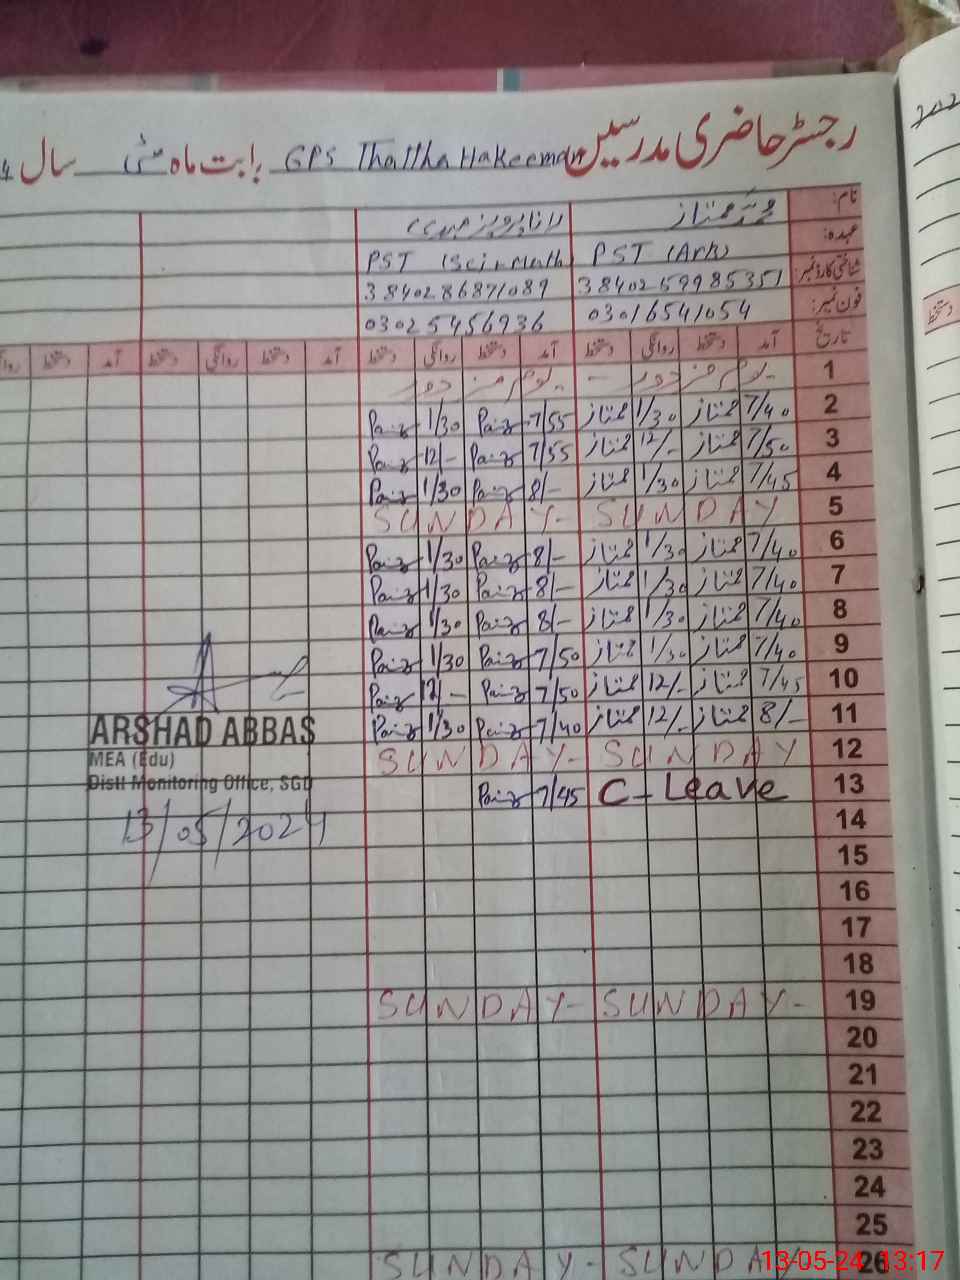 رجسٹر حاضری مدرسین GPS Thattha Hakeeman بابت ماہ مئی سال
نام: محمد ممتاز رانا پرویز مہدی
عہدہ: PST (Arb) PST (Sci. Math)
شناختی کارڈ نمبر: 3840259985351 3840286871089
فون نمبر: 03016541054 03025456936
تاریخ آمد دستخط روانگی دستخط آمد دستخط روانگی دستخط آمد دستخط روانگی دستخط آمد دستخط
دستخط
1 یوم مزدور - یوم مزدور
2 7/40 ممتاز 1/30 ممتاز 7/55 1/30
3 7/50 ممتاز 12/- ممتاز 7/55 12/-
4 7/45 ممتاز 1/30 ممتاز 8/- 1/30
5 SUNDAY- SUNDAY
6 7/40 ممتاز 1/30 ممتاز 8/- 1/30
7 7/40 ممتاز 1/30 ممتاز 8/- 1/30
8 7/40 ممتاز 1/30 ممتاز 8/- 1/30
9 7/40 ممتاز 1/30 ممتاز 7/50 1/30
10 7/45 ممتاز 12/- ممتاز 7/50 12/-
11 8/- ممتاز 12/- ممتاز 7/40 1/30
12 SUNDAY- SUNDAY
13 C-Leave 7/45
ARSHAD ABBAS
MEA (Edu)
Distt Monitoring Office, SGD
13/05/2024
14
15
16
17
18
19 SUNDAY- SUNDAY-
20
21
22
23
24
25
26 SUNDAY- SUNDAY
13-05-24 13:17